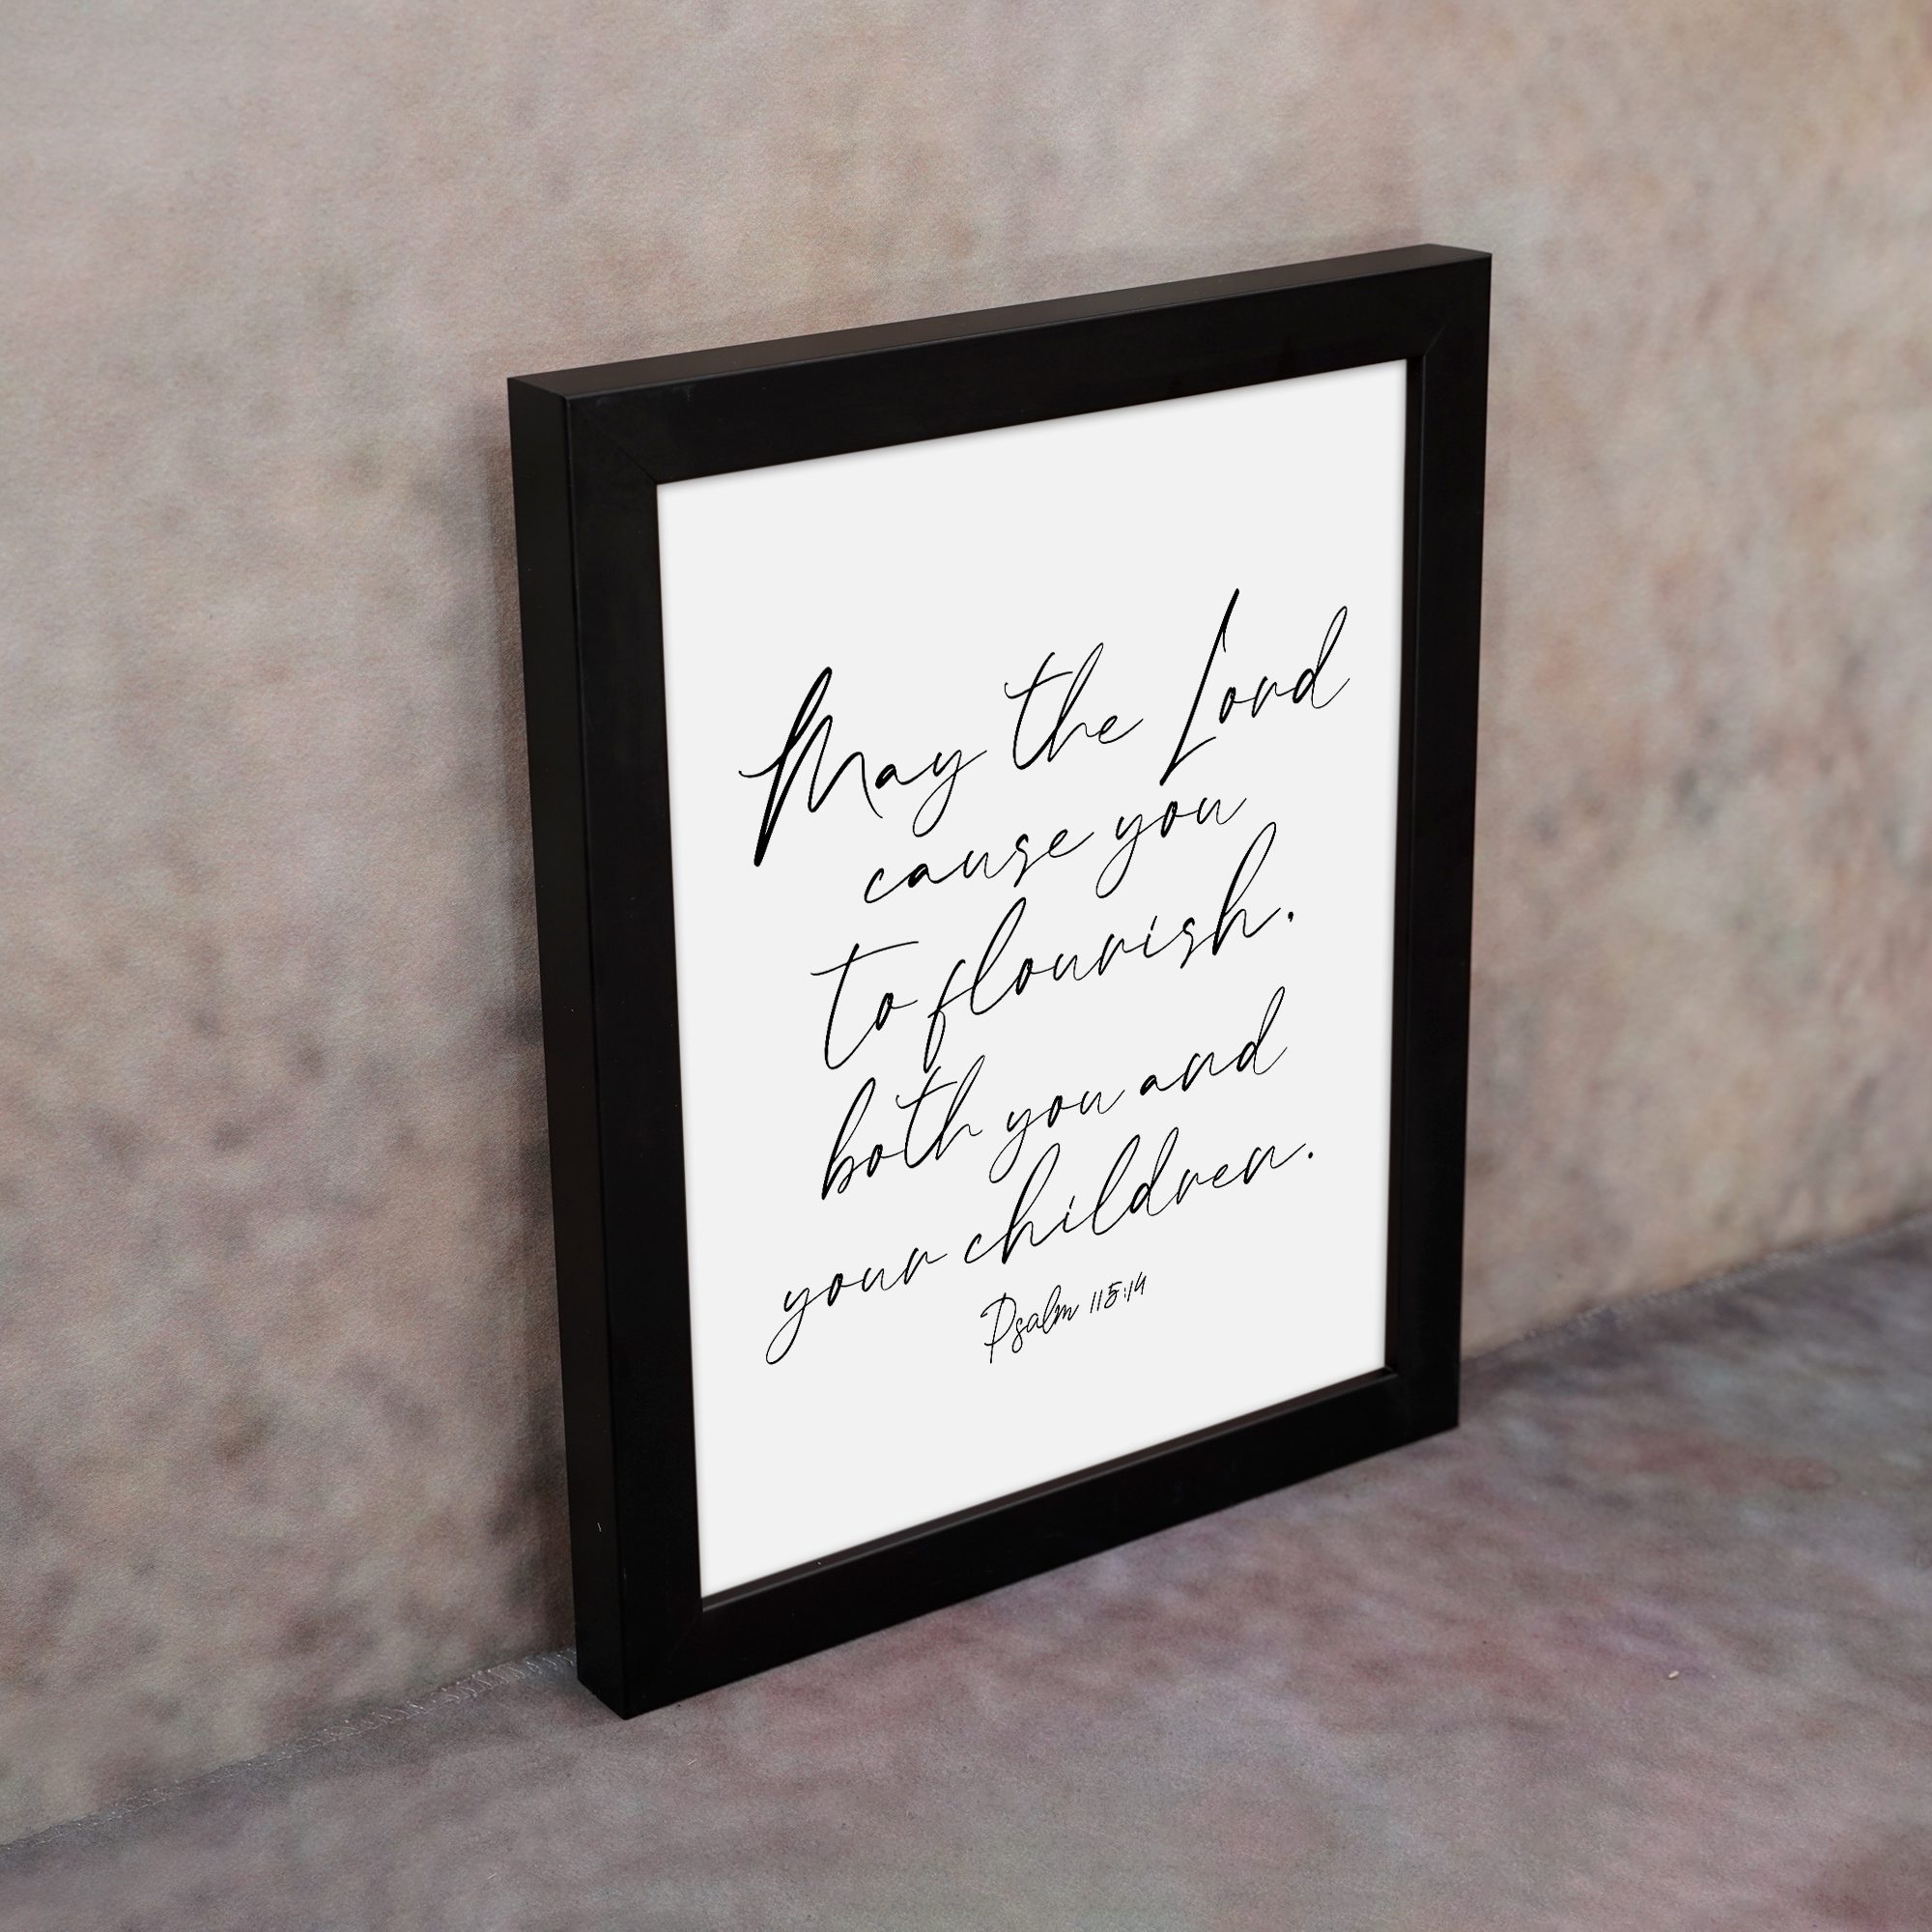 May the Lord
cause you
to flourish.
both you and
your children.
Psalm 115:14